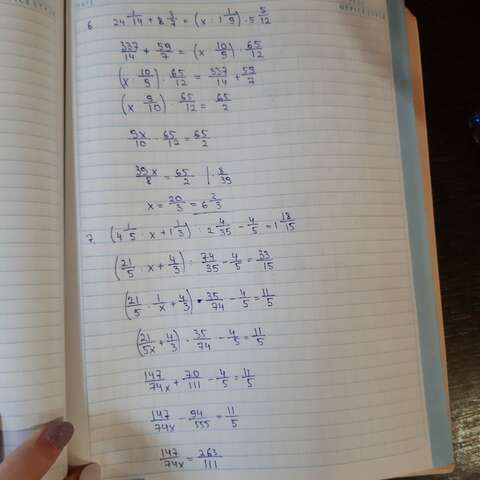 6. 24 1/14 + 8 3/7 = (x : 1 1/9) · 5 5/12
337/14 + 59/7 = (x : 10/9) · 65/12
(x : 10/9) · 65/12 = 337/14 + 59/7
(x · 9/10) · 65/12 = 65/2
9x/10 · 65/12 = 65/2
39x/8 = 65/2 | · 8/39
x = 20/3 = 6 2/3
7. (4 1/5 : x + 1 1/3) : 2 4/35 - 4/5 = 1 18/15
(21/5 : x + 4/3) : 74/35 - 4/5 = 33/15
(21/5 · 1/x + 4/3) · 35/74 - 4/5 = 11/5
(21/5x + 4/3) · 35/74 - 4/5 = 11/5
147/74x + 70/111 - 4/5 = 11/5
147/74x - 94/555 = 11/5
147/74x = 263/111